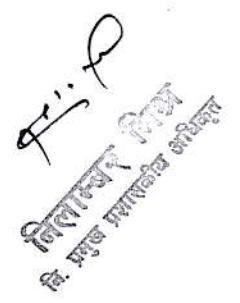 निलाम्बर मिश्र
नि. प्रमुख प्रशासकीय अधिकृत